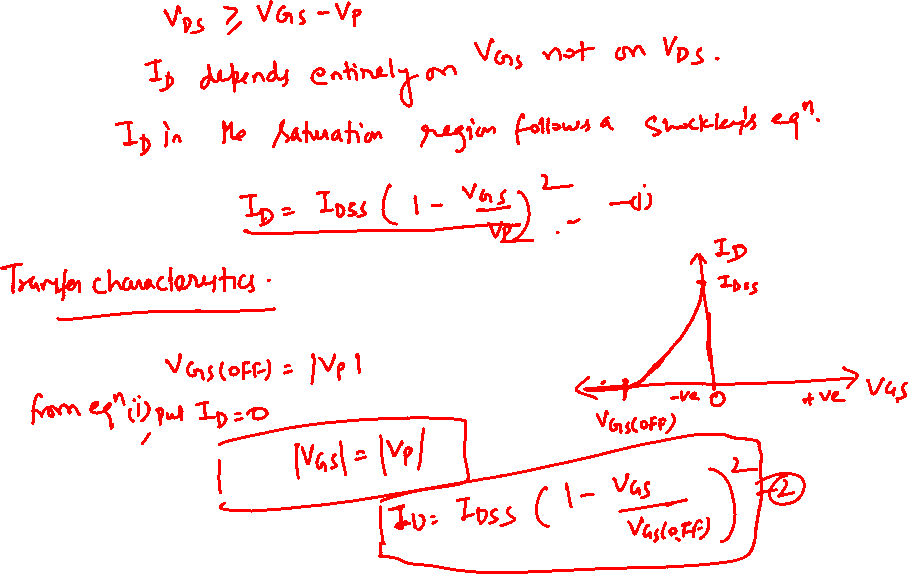 V_DS ≥ V_GS - V_P
I_D depends entirely on V_GS not on V_DS.
I_D in the saturation region follows a Shockley's eqⁿ.
I_D = I_DSS (1 - V_GS/V_P)² - (i)
Transfer characteristics.
I_D
I_DSS
V_GS(OFF) = |V_P|
-ve 0 +ve V_GS
V_GS(OFF)
from eqⁿ (i) put I_D = 0
|V_GS| = |V_P|
I_D = I_DSS (1 - V_GS/V_GS(OFF))² - 2